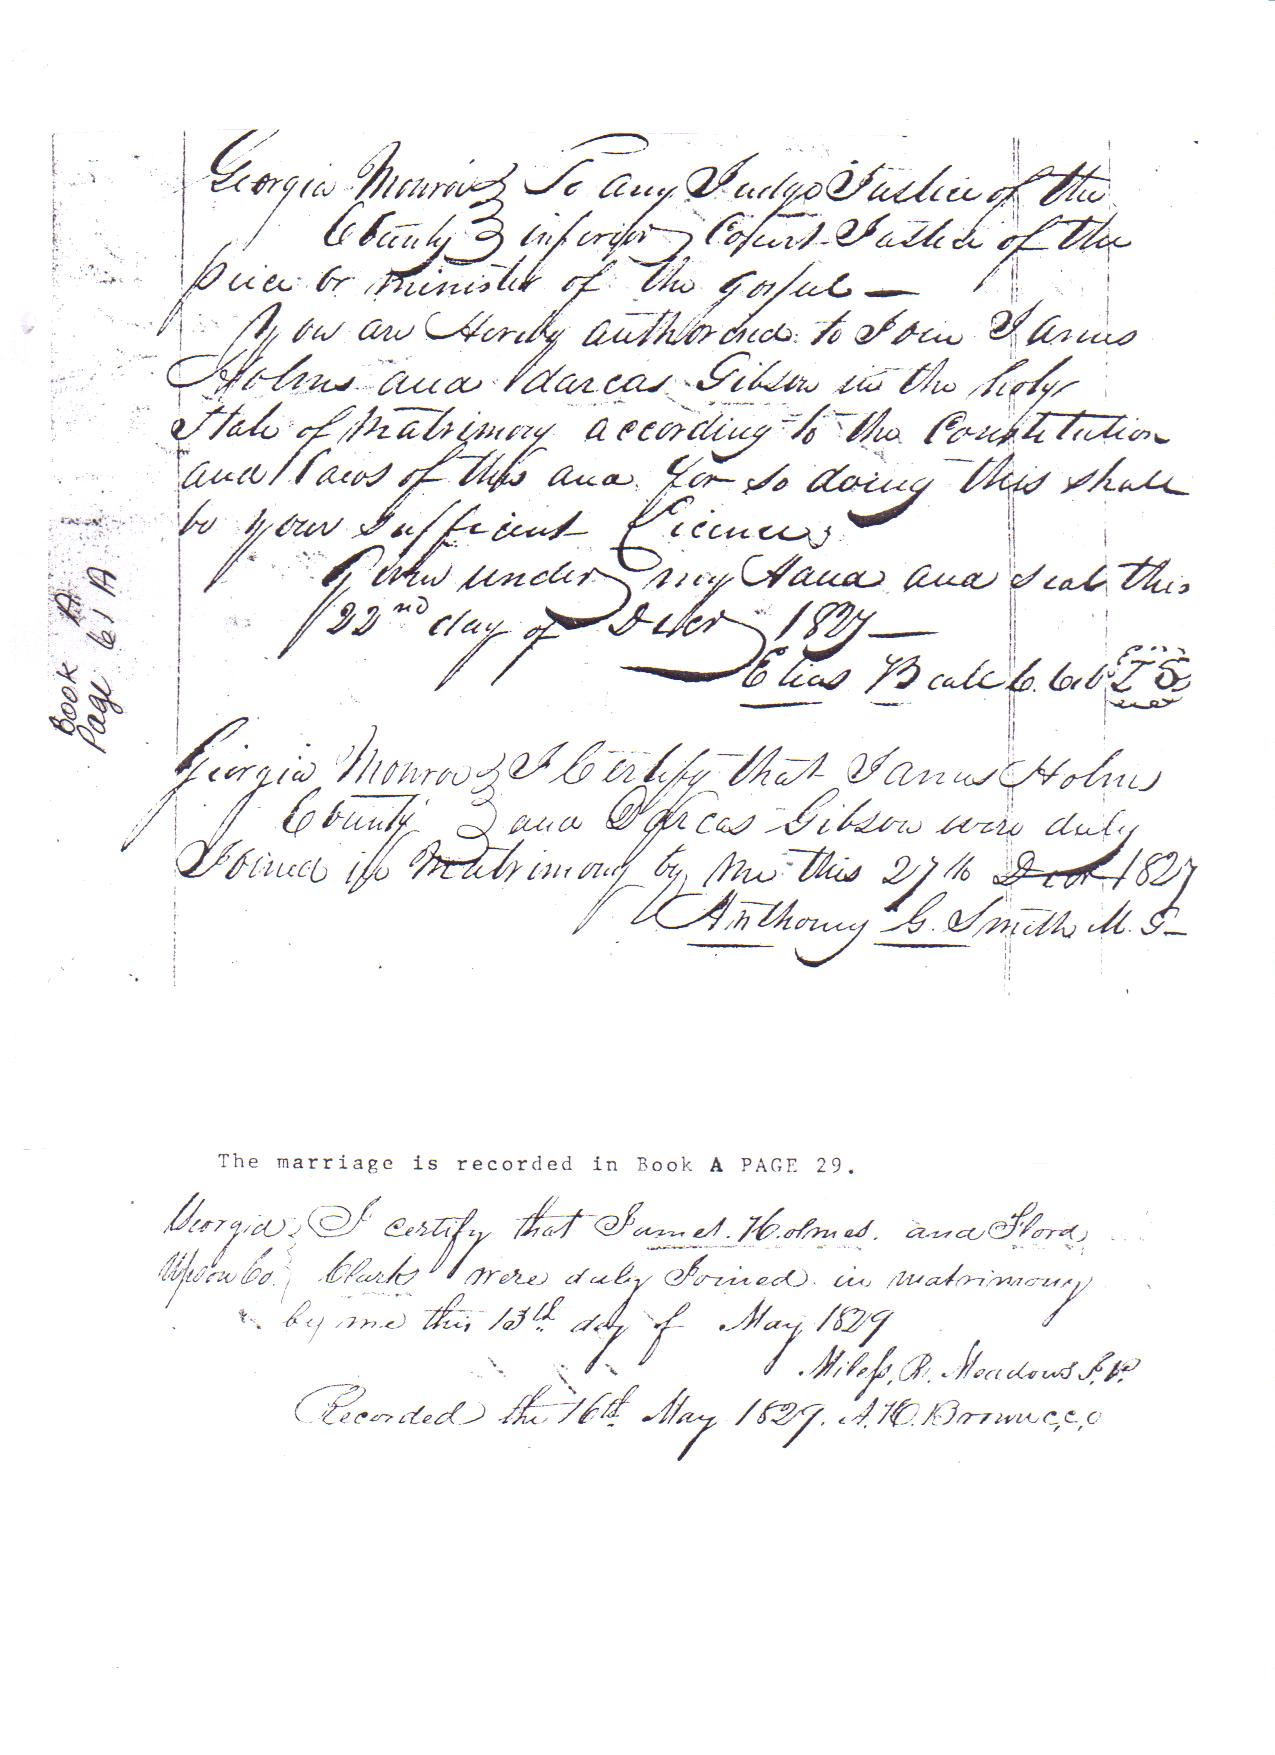 Georgia Monroe } To any Judge Justice of the
County } inferior Court Justice of the
piece or minister of the gospel —
You are Hereby authorised to Join James
Holms and darcas Gibson in the holy
State of Matrimony according to the Constitution
and Laws of this and for so doing this shall
be your sufficient Licence
Given under my Hand and seal this
22nd day of Decr 1827 —
Elias Beall C.C.O LS
Georgia Monroe } I Certify that James Holms
County } and Darcas Gibson were duly
Joined in Matrimony by me this 27th Decr 1827
Anthony G. Smith M. G
Book A
Page 61 A
The marriage is recorded in Book A PAGE 29.
Georgia } I certify that James. Holmes. and Flora
Upson Co. } Clarks were duly Joined in matrimony
by me this 13th day of May 1829
Miles, R. Meadows J.P.
Recorded the 16th May 1829. A. H. Brown c,c,o